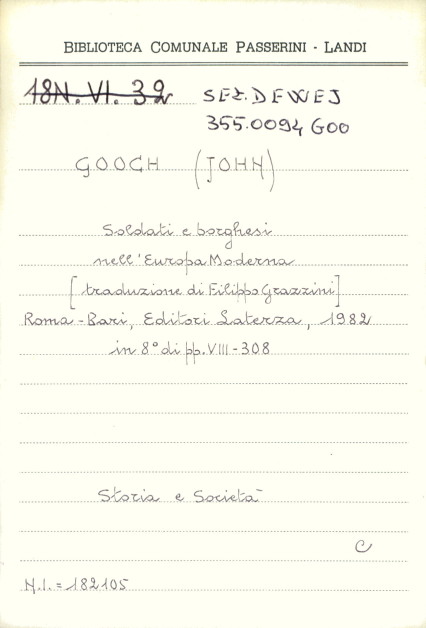 BIBLIOTECA COMUNALE PASSERINI - LANDI
18N. VI. 32 SEZ. DEWEJ
355.0094 GOO
GOOCH (JOHN)
Soldati e borghesi
nell'Europa Moderna
[traduzione di Filippo Grazzini]
Roma-Bari, Editori Laterza, 1982
in 8° di pp. VIII-308
Storia e Società
C
N.I. = 182105